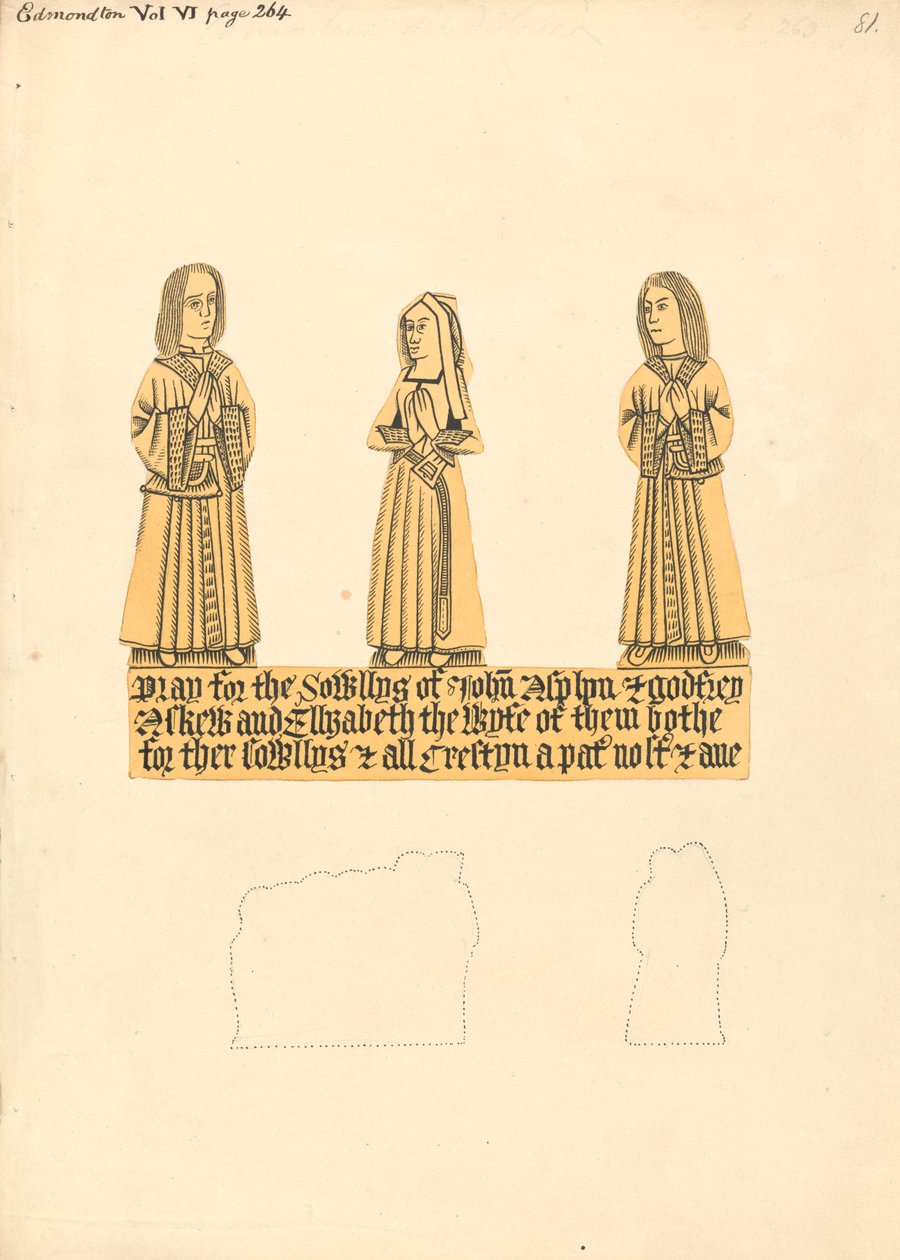 Edmondton Vol VI page 264
81.
Pray for the Sowllys of John̄ Asplyn & godfrey
Askew and Ellyzabeth the Wyfe of them bothe
for ther Sowllys & all Crestyn a pat nost & aue